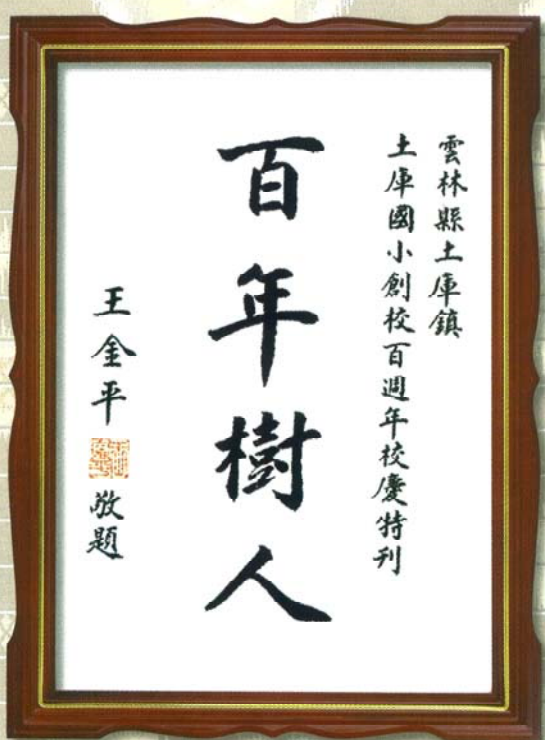 雲林縣土庫鎮
土庫國小創校百週年校慶特刊
百年樹人
王金平 敬題